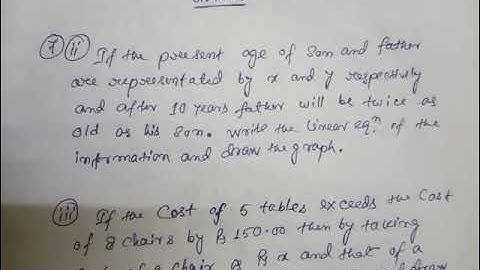 7 ii If the present age of Son and father
are represented by x and y respectively
and after 10 years father will be twice as
old as his Son. Write the linear eqn of the
information and draw the graph.
iii If the Cost of 5 tables exceeds the Cost
of 8 chairs by ₨ 150.00 then by taking
of a chair ₨ x and that of a
draw